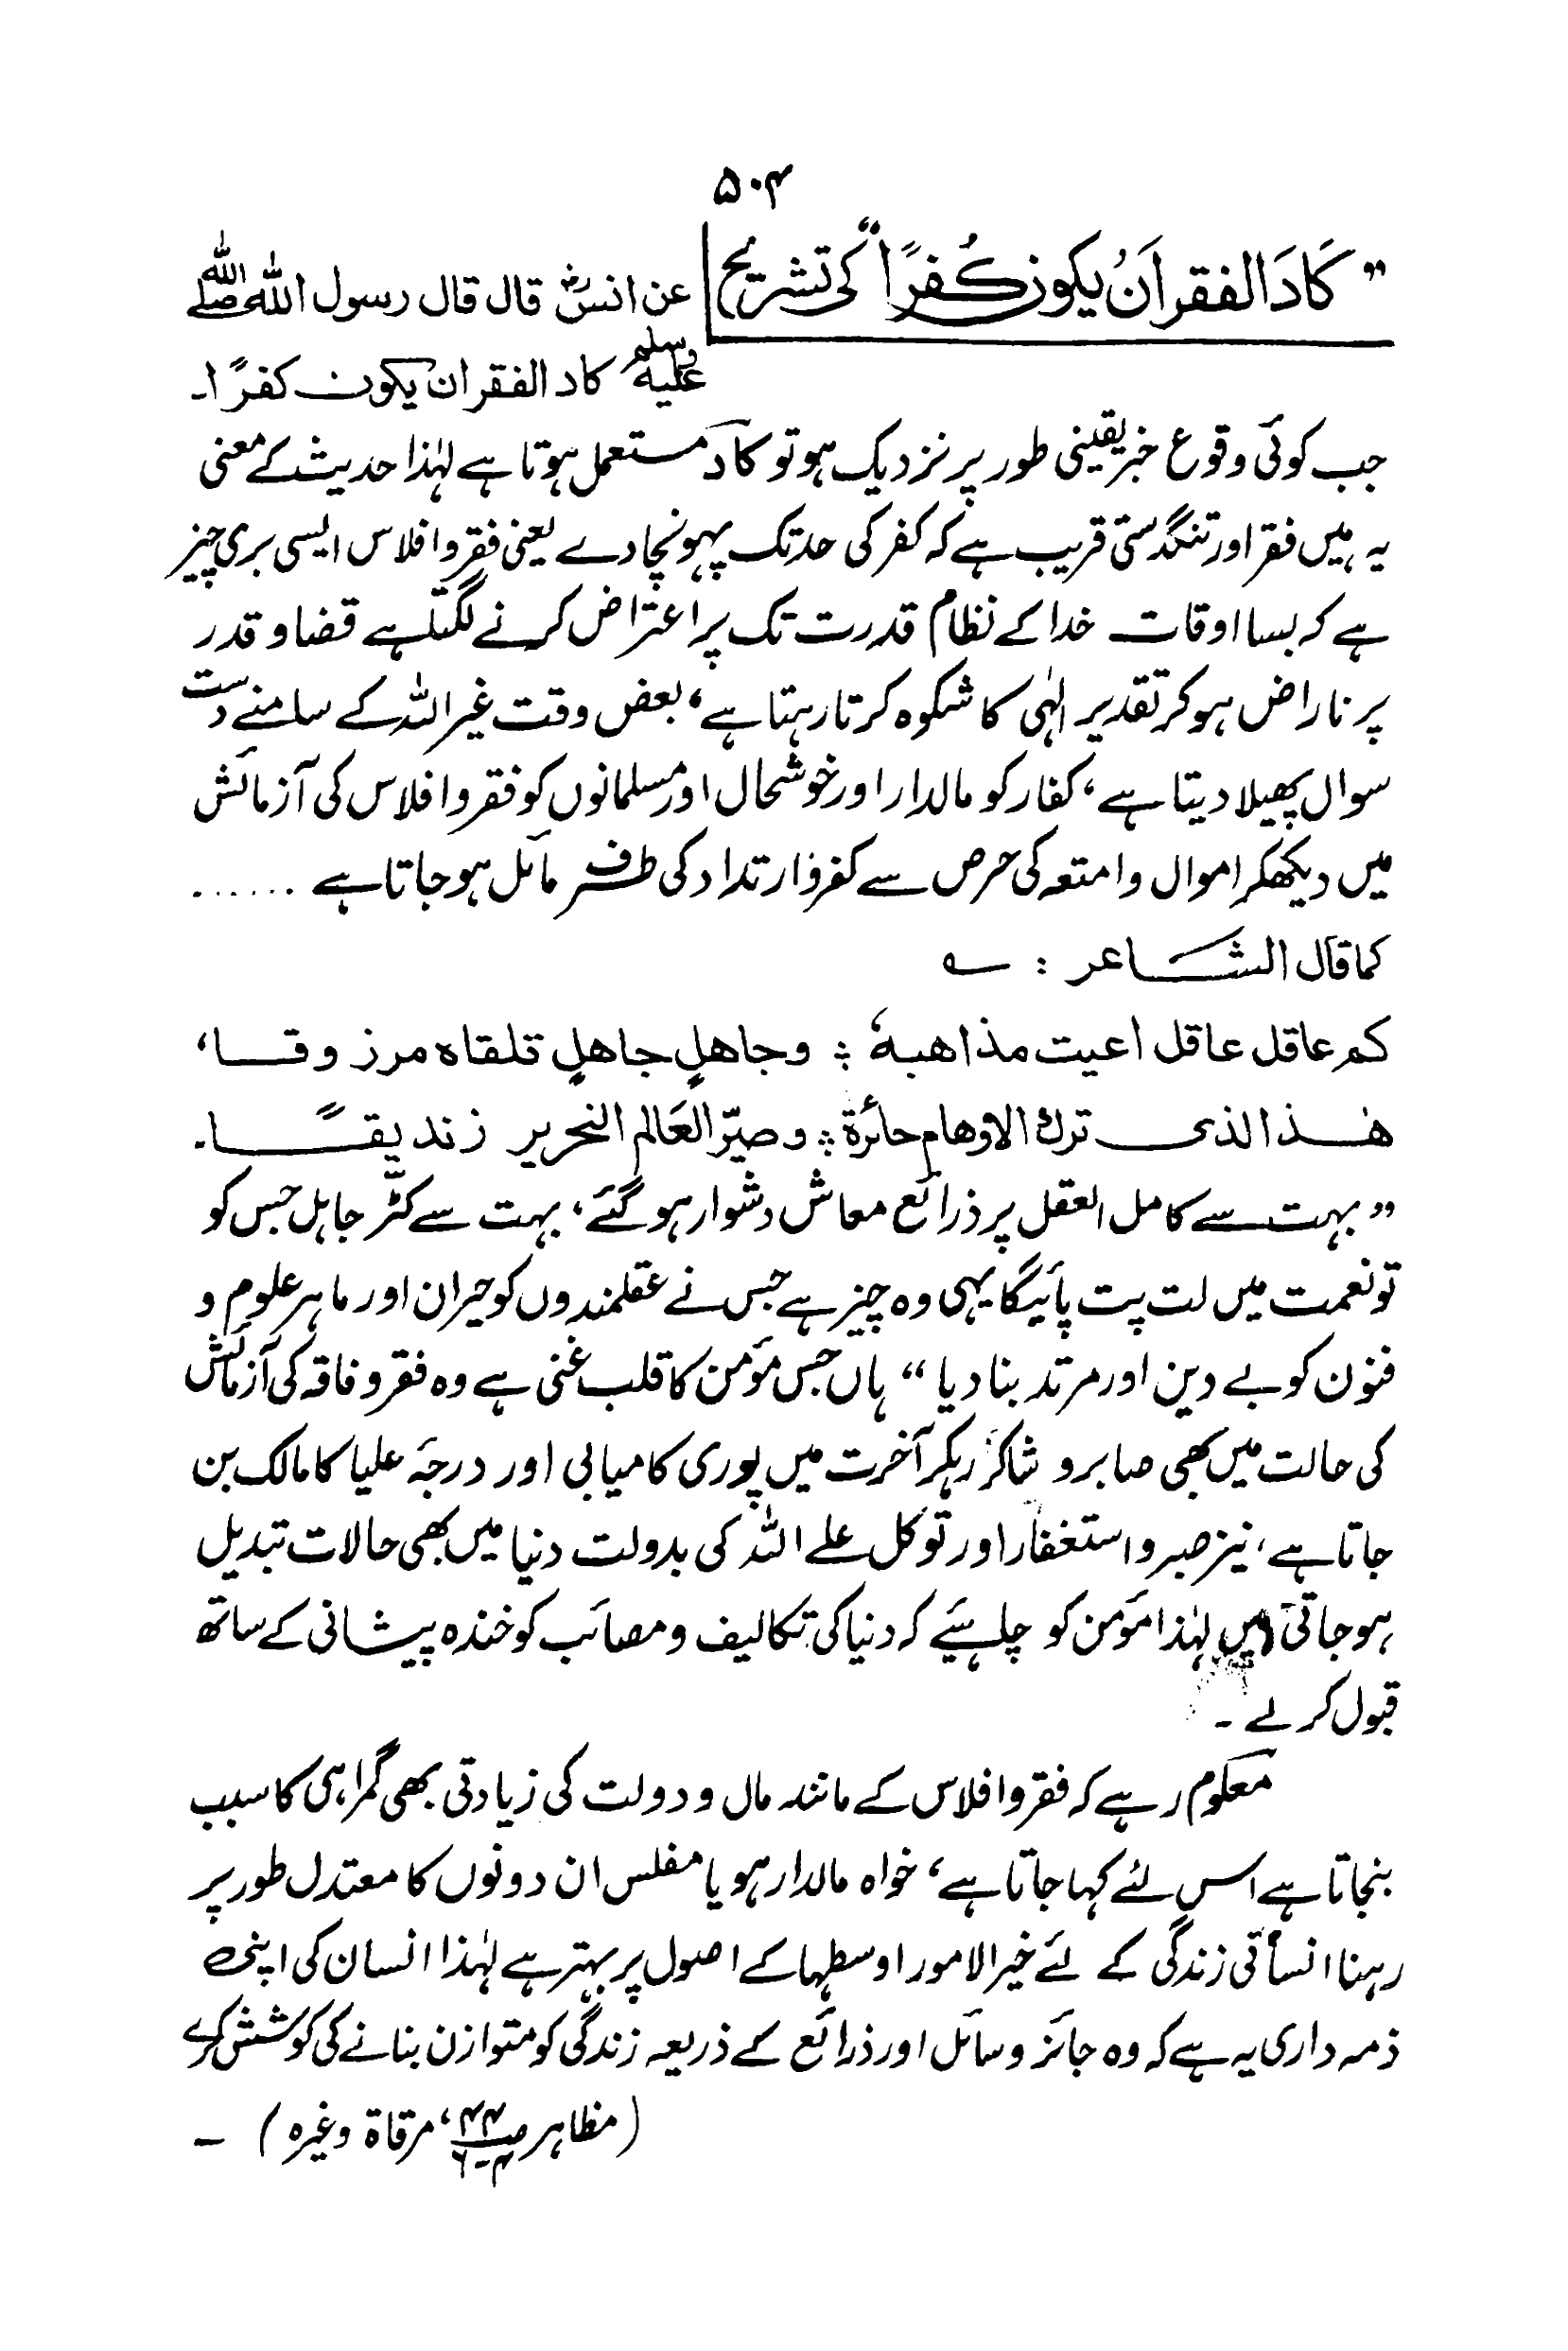 ۵۰۴
”كَادَ الفقر اَنُ يكون كُفرًا“ کی تشریح عن انسؓ قال قال رسول اللہ صلی اللہ
علیہ وسلم كاد الفقر ان يكون كفرًا۔
جب کوئی وقوع خبر یقینی طور پر نزدیک ہو تو کادَ مستعمل ہوتا ہے لہٰذا حدیث کے معنی
یہ ہیں فقر اور تنگدستی قریب ہے کہ کفر کی حد تک پہونچا دے یعنی فقر وافلاس ایسی بری چیز
ہے کہ بسا اوقات خدا کے نظام قدرت تک پر اعتراض کرنے لگتا ہے قضا و قدر
پر ناراض ہو کر تقدیر الٰہی کا شکوہ کرتا رہتا ہے، بعض وقت غیر اللہ کے سامنے دست
سوال پھیلا دیتا ہے، کفار کو مالدار اور خوشحال اور مسلمانوں کو فقر وافلاس کی آزمائش
میں دیکھکر اموال وامتعہ کی حرص سے کفر وارتداد کی طرف مائل ہو جاتا ہے ......
کما قال الشاعر : ؎
كم عاقل عاقل اعيت مذاهبهٗ ؛ وجاهلٍ جاهلٍ تلقاه مرزوقا،
هٰذا الذی ترك الاوهام حائرة ؛ وصيّر العَالم النحرير زنديقًا۔
”بہت سے کامل العقل پر ذرائع معاش دشوار ہو گئے، بہت سے کٹّر جاہل جس کو
تو نعمت میں لت پت پائیگا یہی وہ چیز ہے جس نے عقلمندوں کو حیران اور ماہر علوم و
فنون کو بے دین اور مرتد بنا دیا “ ہاں جس مؤمن کا قلب غنی ہے وہ فقر و فاقہ کی آزمائش
کی حالت میں بھی صابر و شاکر رہکر آخرت میں پوری کامیابی اور درجۂ علیا کا مالک بن
جاتا ہے، نیز صبر و استغفار اور توکل علے اللہ کی بدولت دنیا میں بھی حالات تبدیل
ہو جاتی ہیں لہٰذا مؤمن کو چاہئیے کہ دنیا کی تکالیف و مصائب کو خندہ پیشانی کے ساتھ
قبول کرلے ۔
معلوم رہے کہ فقر وافلاس کے مانند مال و دولت کی زیادتی بھی گمراہی کا سبب
بنجاتا ہے اس لئے کہا جاتا ہے، خواہ مالدار ہو یا مفلس ان دونوں کا معتدل طور پر
رہنا انسانی زندگی کے لئے خیر الامور اوسطہا کے اصول پر بہتر ہے لہٰذا انسان کی اپنی
ذمہ داری یہ ہے کہ وہ جائز وسائل اور ذرائع کے ذریعہ زندگی کو متوازن بنانے کی کوشش کرے
(مظاہر ص۴۴/۴-۶، مرقاۃ وغیرہ) ۔